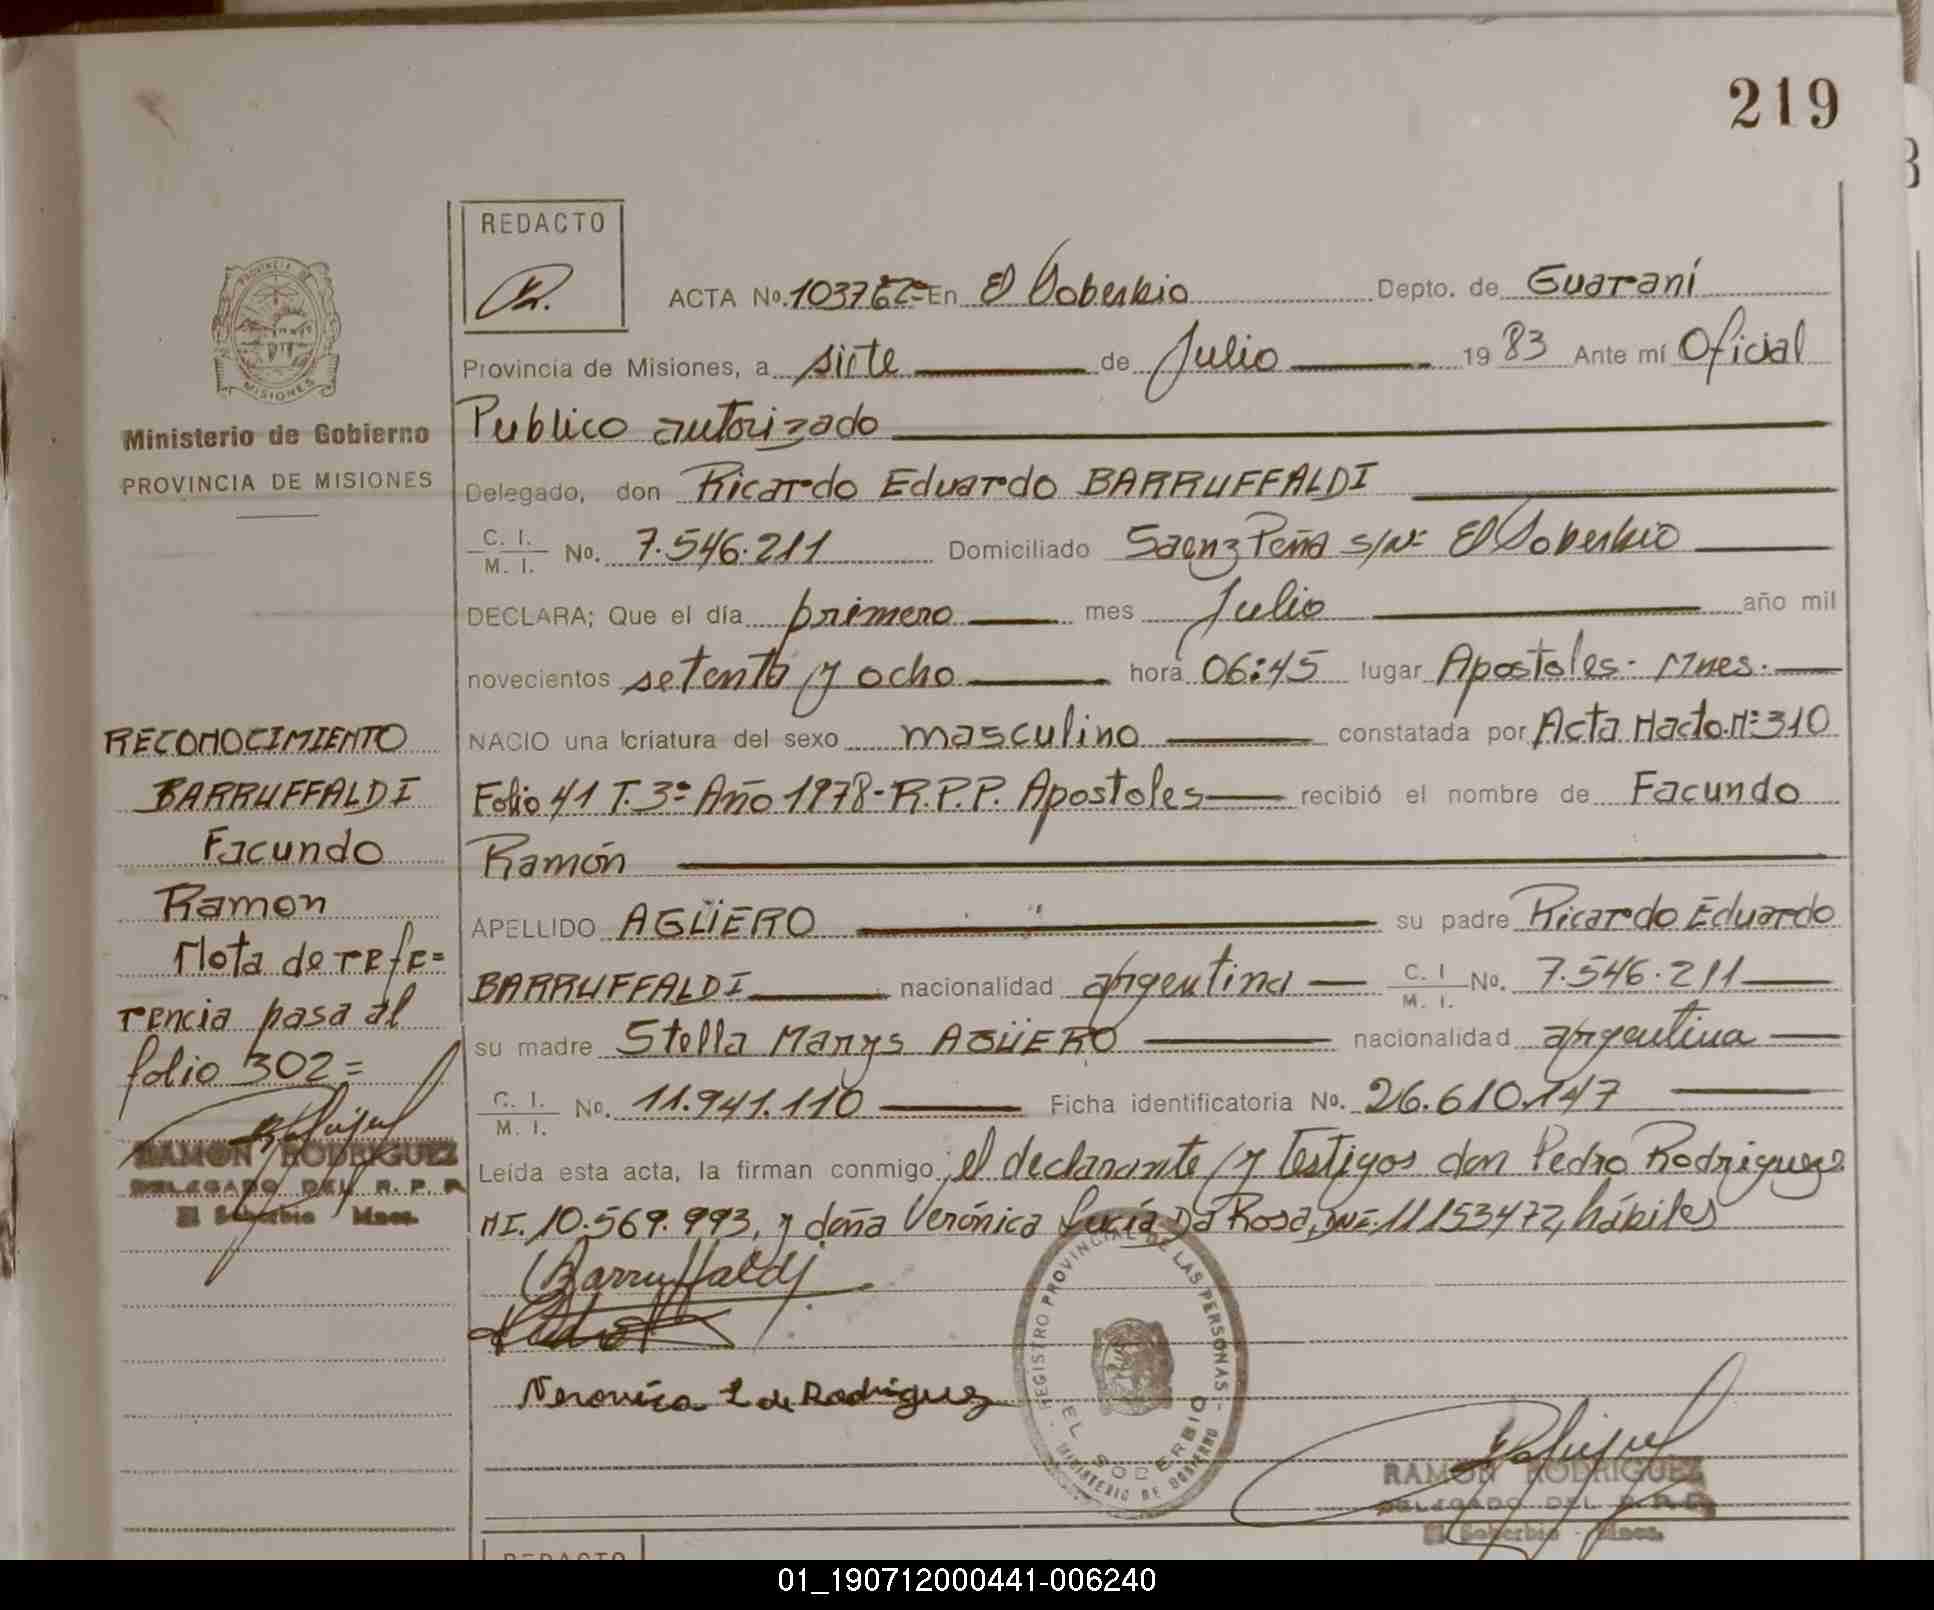 219
REDACTO
PROVINCIA DE
MISIONES
Ministerio de Gobierno
PROVINCIA DE MISIONES
ACTA No. En El Soberbio Depto. de Guaraní
Provincia de Misiones, a siete de Julio 1983 Ante mí Oficial
Publico autorizado
Delegado, don Ricardo Eduardo BARRUFFALDI
C. I.
M. I. No. 7.546.211 Domiciliado Saenz Peña s/Nº El Soberbio
DECLARA; Que el día primero mes Julio año mil
novecientos setenta y ocho hora 06:45 lugar Apostoles - Mnes.
NACIO una criatura del sexo masculino constatada por Acta Nacto. Nº 310
Folio 41 T. 3º Año 1978 - R.P.P. Apostoles recibió el nombre de Facundo
Ramón
APELLIDO AGÜERO su padre Ricardo Eduardo
BARRUFFALDI nacionalidad argentina C. I.
M. I. No. 7.546.211
su madre Stella Marys AGÜERO nacionalidad argentina
C. I.
M. I. No. 11.941.110 Ficha identificatoria No. 26.610.147
Leída esta acta, la firman conmigo, el declarante y testigos don Pedro Rodriguez
MI. 10.569.993, y doña Verónica Lucía Da Rosa, 11153472, hábiles
Barruffaldi
Veronica L de Rodriguez
RECONOCIMIENTO
BARRUFFALDI
Facundo
Ramon
Nota de refe=
rencia pasa al
folio 302=
RAMON RODRIGUEZ
DELEGADO DEL R. P. P.
El Soberbio Mnes.
REGISTRO PROVINCIAL DE LAS PERSONAS
EL SOBERBIO
MINISTERIO DE GOBIERNO
RAMON RODRIGUEZ
DELEGADO DEL R. P. P.
El Soberbio - Mnes.
REDACTO
01_190712000441-006240